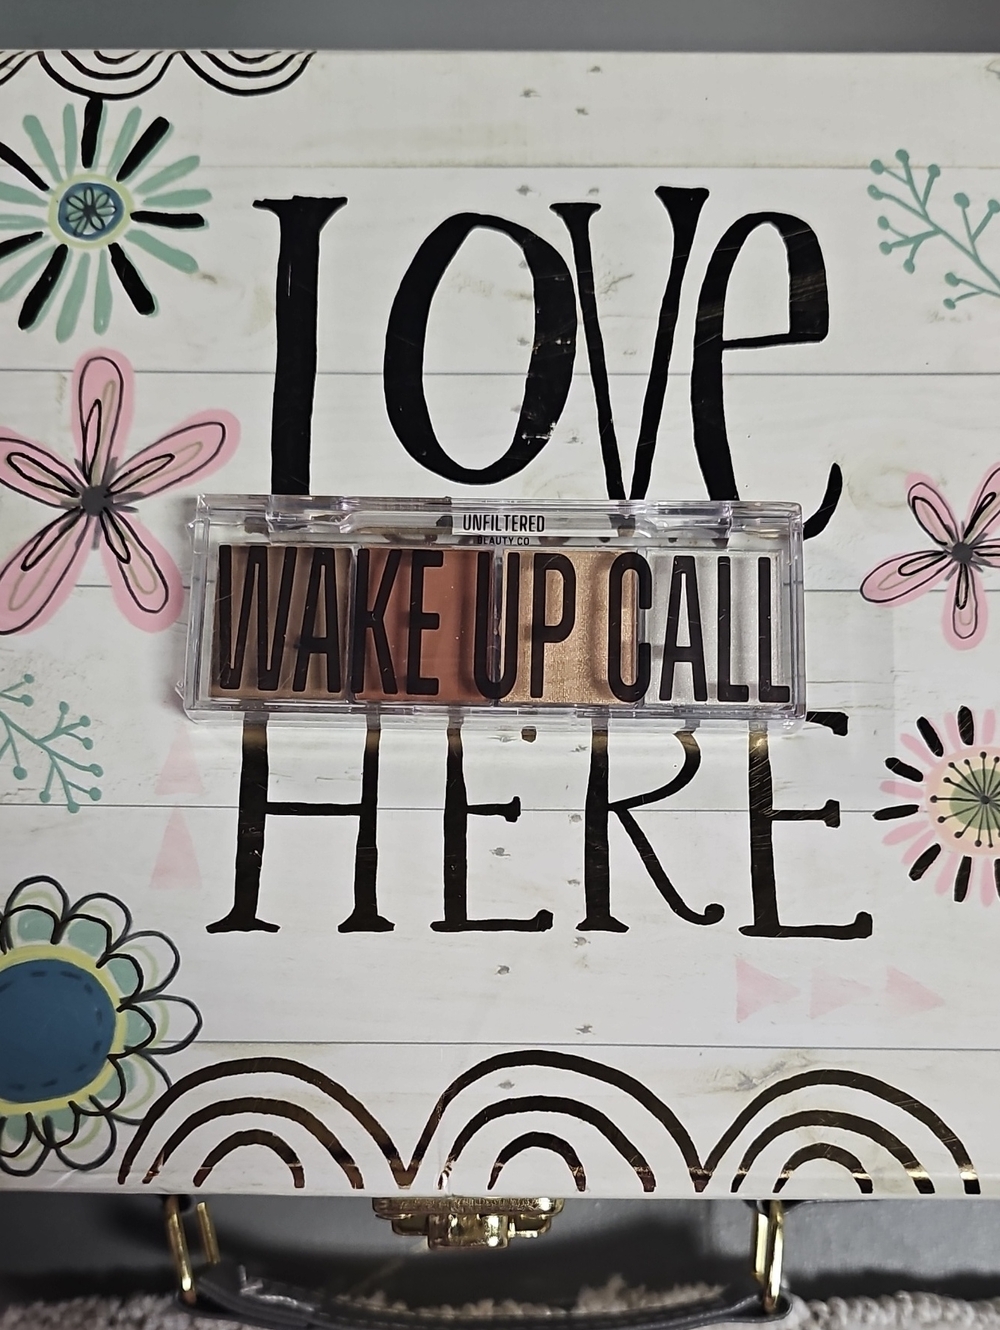 LOVe
UNFILTERED
BEAUTY CO
WAKE UP CALL
HERE